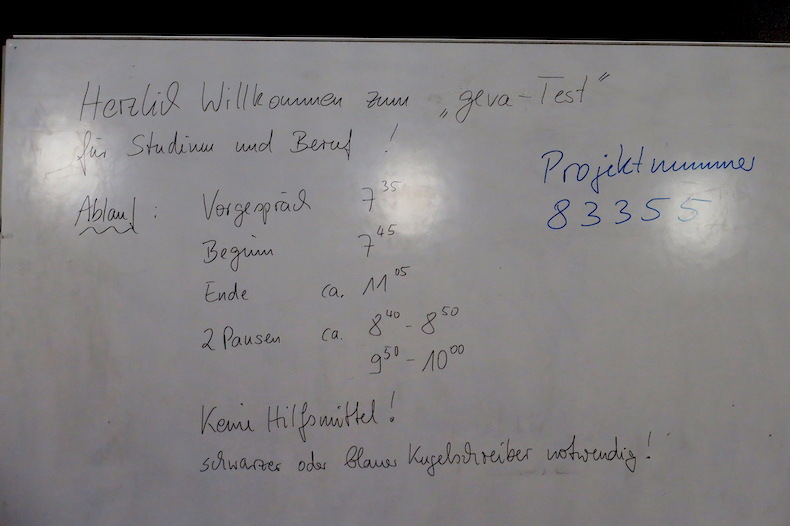 Herzlich Willkommen zum „geva-Test"
für Studium und Beruf!
Projektnummer
83355
Ablauf: Vorgespräch 7³⁵
Beginn 7⁴⁵
Ende ca. 11⁰⁵
2 Pausen ca. 8⁴⁰ - 8⁵⁰
9⁵⁰ - 10⁰⁰
Keine Hilfsmittel!
schwarzer oder blauer Kugelschreiber notwendig!